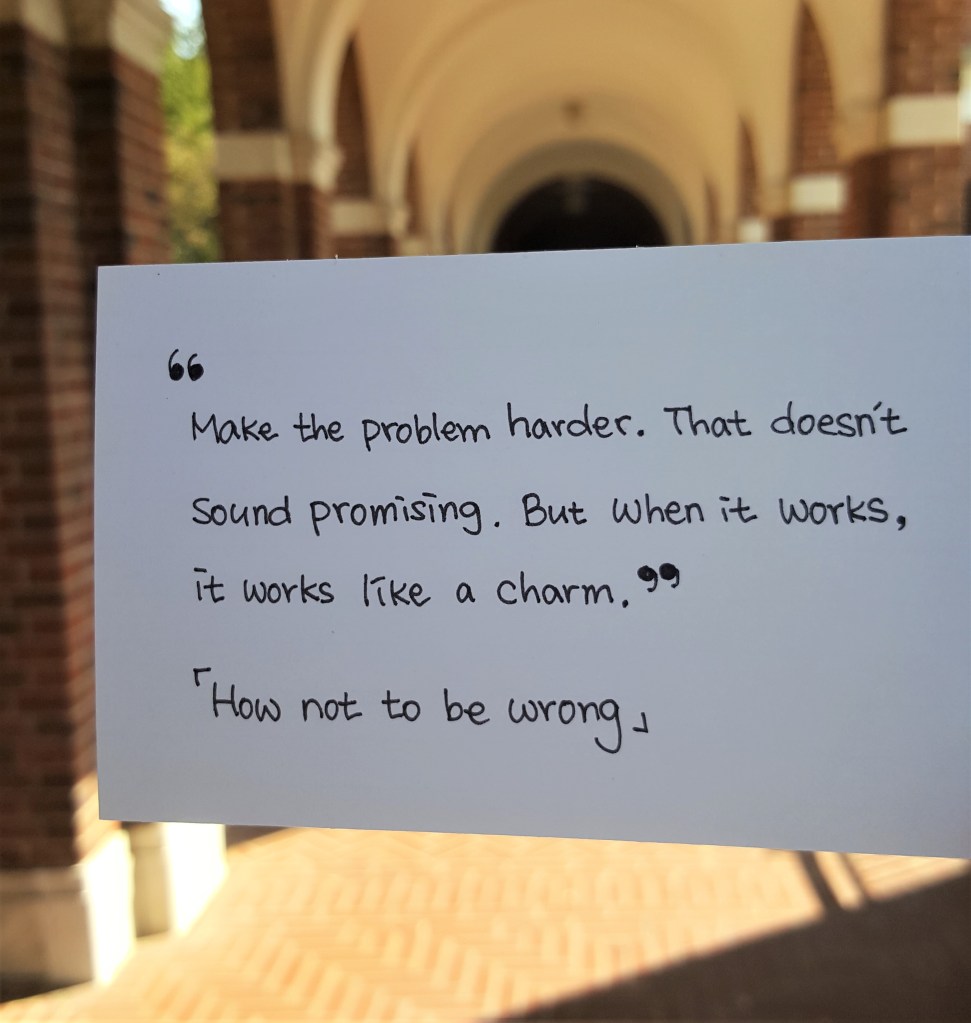 “
Make the problem harder. That doesn't
sound promising. But when it works,
it works like a charm.”
「How not to be wrong」